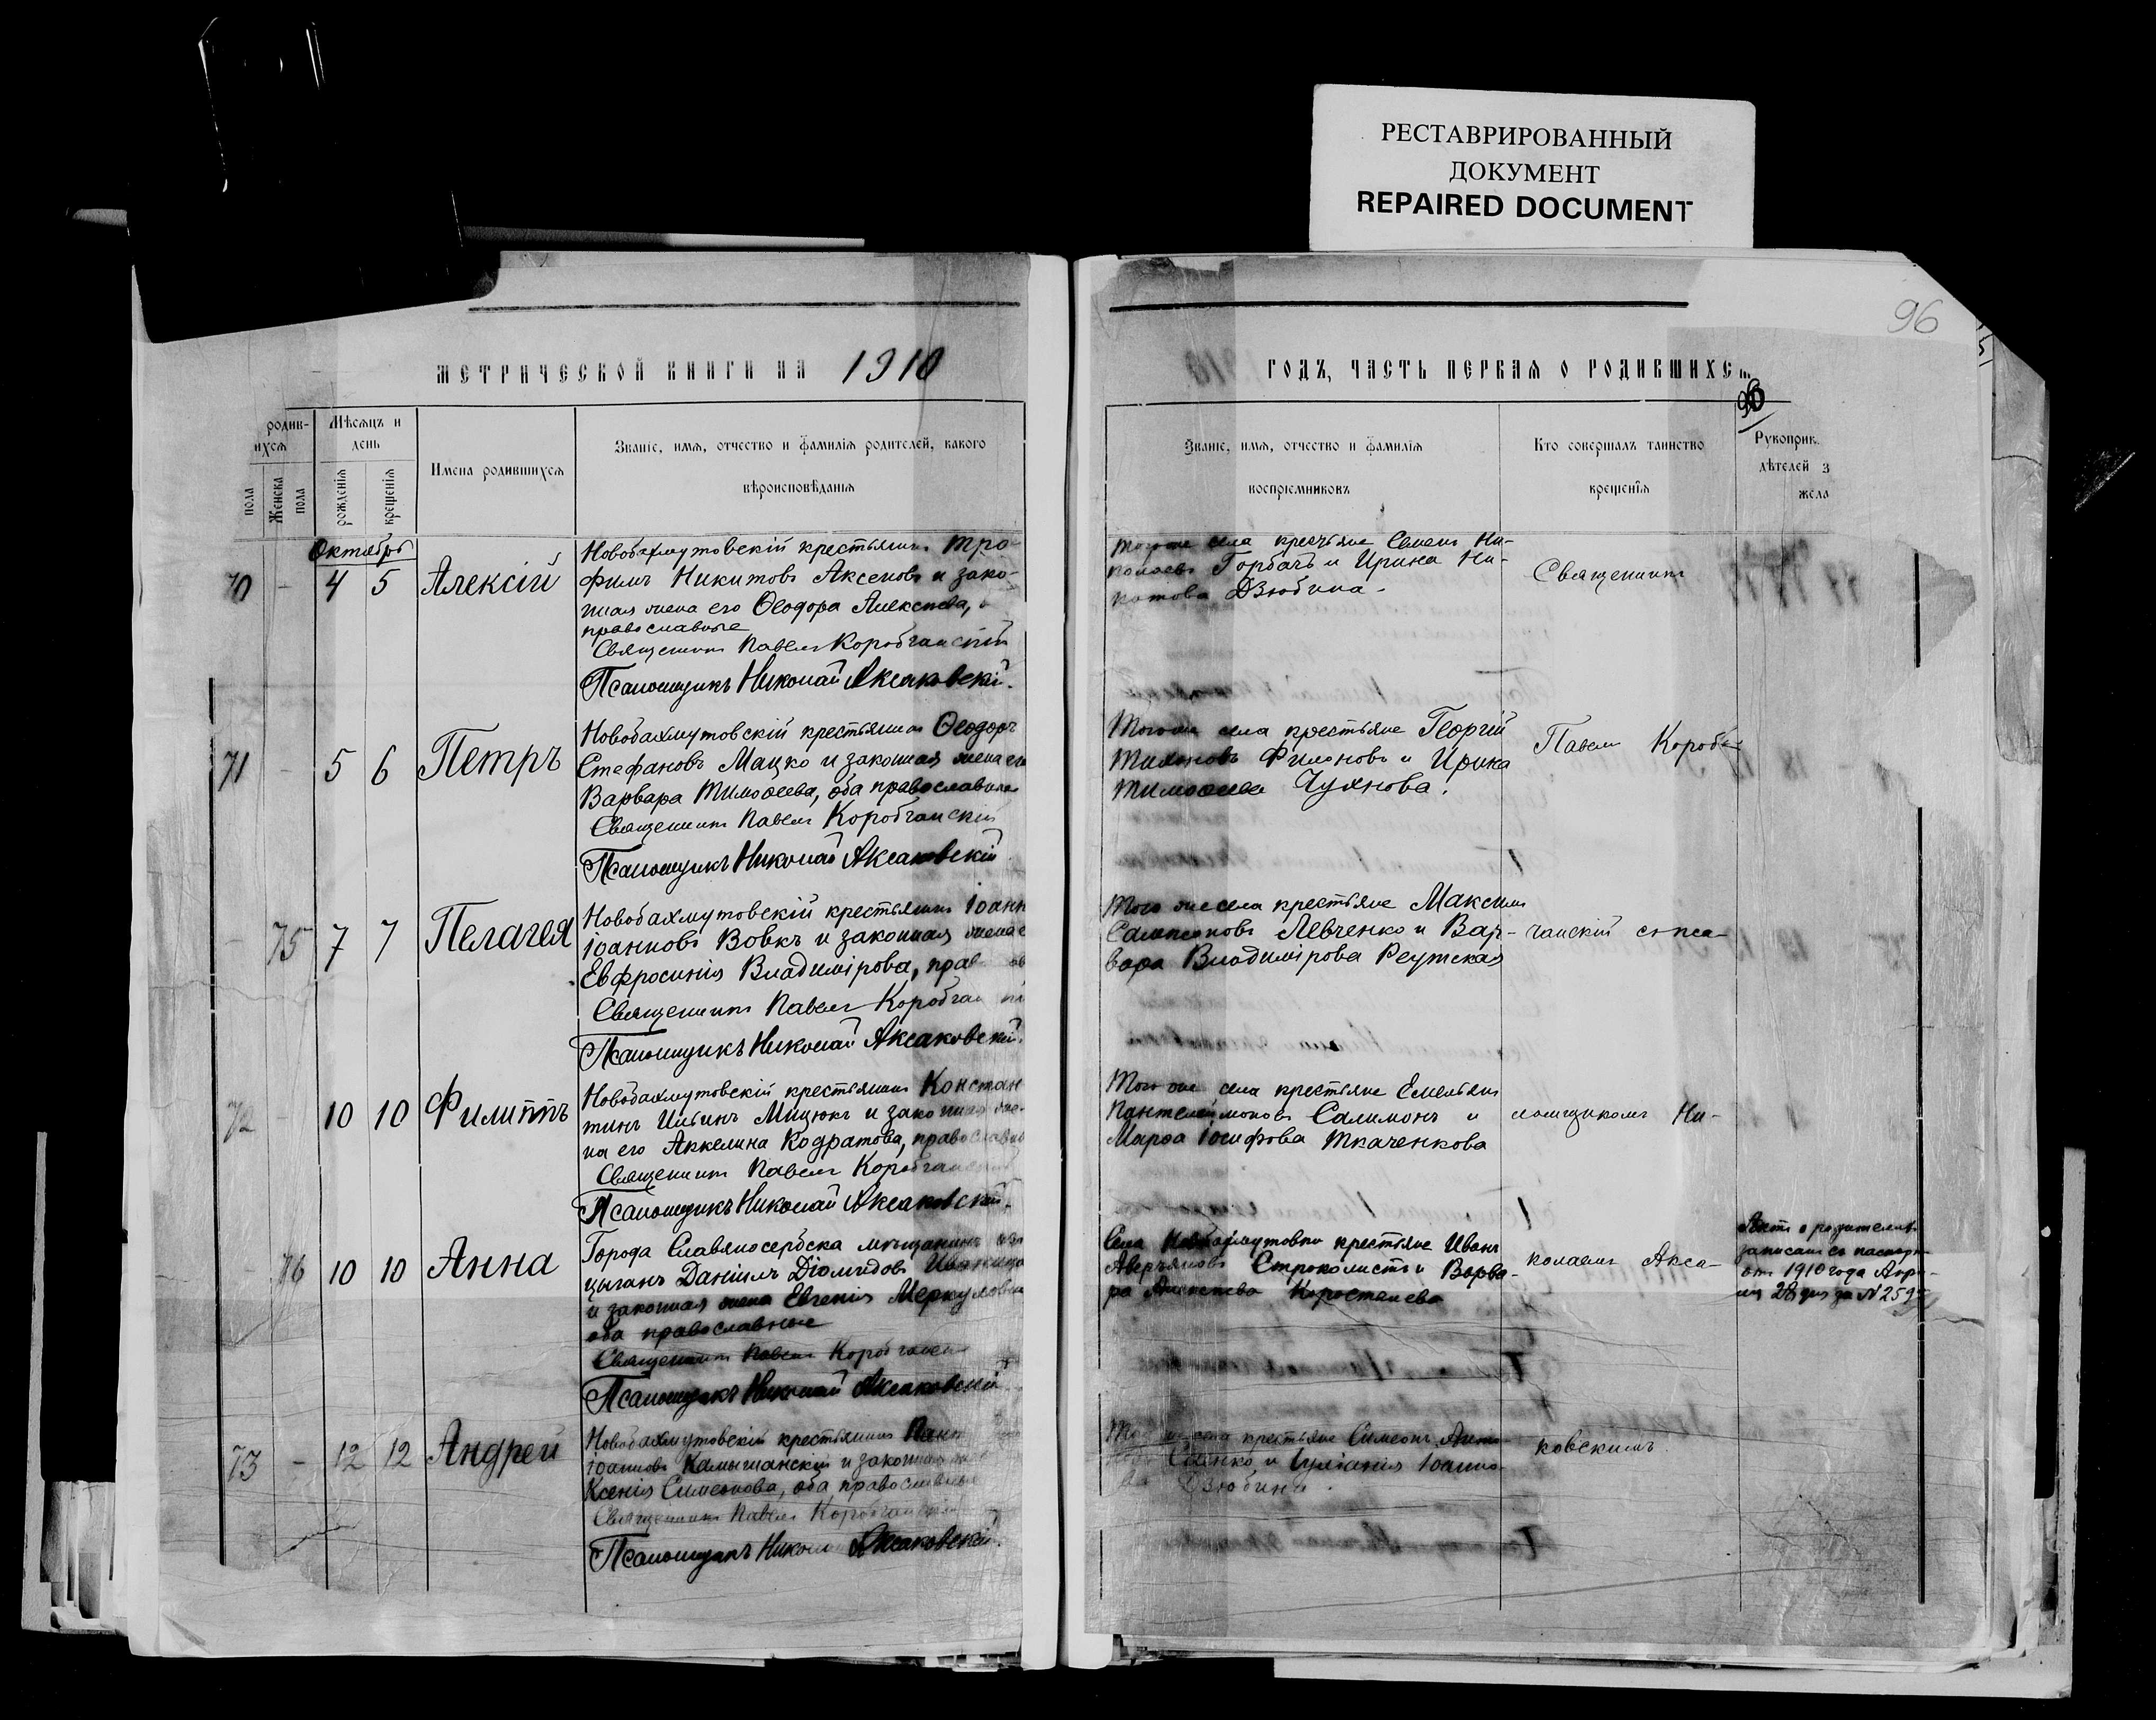 РЕСТАВРИРОВАННЫЙ
ДОКУМЕНТ
REPAIRED DOCUMENT
96
МЕТРИЧЕСКОЙ КНИГИ НА 1910
родив-
ихся
пола
Женска пола
Мѣсяцъ и
день
рожденія
крещенія
Имена родившихся
Званіе, имя, отчество и фамилія родителей, какого
вѣроисповѣданія
Октябрь
70 - 4 5 Алексій
Новобахмутовскій крестьянинъ Тро-
фимъ Никитовъ Аксеновъ и зако-
нная жена его Ѳеодора Алексѣева,
православные
Священникъ Павелъ Коробчанскій
Псаломщикъ Николай Аксаковскій.
71 - 5 6 Петръ
Новобахмутовскій крестьянинъ Ѳеодоръ
Стефановъ Мацко и законная жена его
Варвара Тимоѳеева, оба православные
Священникъ Павелъ Коробчанскій
Псаломщикъ Николай Аксаковскій
- 75 7 7 Пелагея
Новобахмутовскій крестьянинъ Іоанн
Іоанновъ Вовкъ и законная жена е
Евфросинія Владимірова, прав
Священникъ Павелъ Коробчан
Псаломщикъ Николай Аксаковскій.
72 - 10 10 Филиппъ
Новобахмутовскій крестьянинъ Констан
тинъ Ильинъ Мицюкъ и законная же-
на его Аккелина Кодратова, православн
Священникъ Павелъ Коробчанскій
Псаломщикъ Николай Аксаковскій.
76 10 10 Анна
Города Славяносербска мѣщанинъ изъ
цыганъ Даніилъ Діомидовъ
и законная жена Евгенія Меркулова
оба православные
Священникъ Павелъ Коробчанск
Псаломщикъ Николай Аксаковскій
73 - 12 12 Андрей
Новобахмутовскій крестьянинъ
Іоанновъ Камышанскій и законная
Ксенія Симеонова, оба православные
Священникъ Павелъ Коробчанскій
Псаломщикъ Никол Аксаковскій.
ГОДЪ, ЧАСТЬ ПЕРВАЯ О РОДИВШИХСЯ
96
Званіе, имя, отчество и фамилія
воспріемниковъ
Кто совершалъ таинство
крещенія
Рукоприк.
дѣтелей з
жела
Того же села крестьяне Семенъ Ни-
колаевъ Горбачъ и Ирина Ни-
китова Дзюбина.
Священникъ
Того же села крестьяне Георгій
Тихоновъ Филоновъ и Ирина
Тимоѳеева Чухнова.
Павелъ Коробч
Того же села крестьяне Максимъ
Сампсоновъ Левченко и Вар-
вара Владимірова Реутская
чанскій съ пса-
Того же села крестьяне Емельянъ
Пантелеймоновъ Салимонъ и
Марѳа Іосифова Ткаченкова
ломщикомъ Ни-
Села Новобахмутовки крестьяне Иванъ
Аверьяновъ Строколистъ и Варва-
ра Алексѣева Коростелева
колаемъ Акса-
Актъ о родителяхъ
записанъ съ паспорта
отъ 1910 года Апрѣ-
ля 28 дня за № 2595
села крестьяне Симеонъ
Саенко и Іуліанія Іоанно-
ва Дзюбина.
ковскимъ